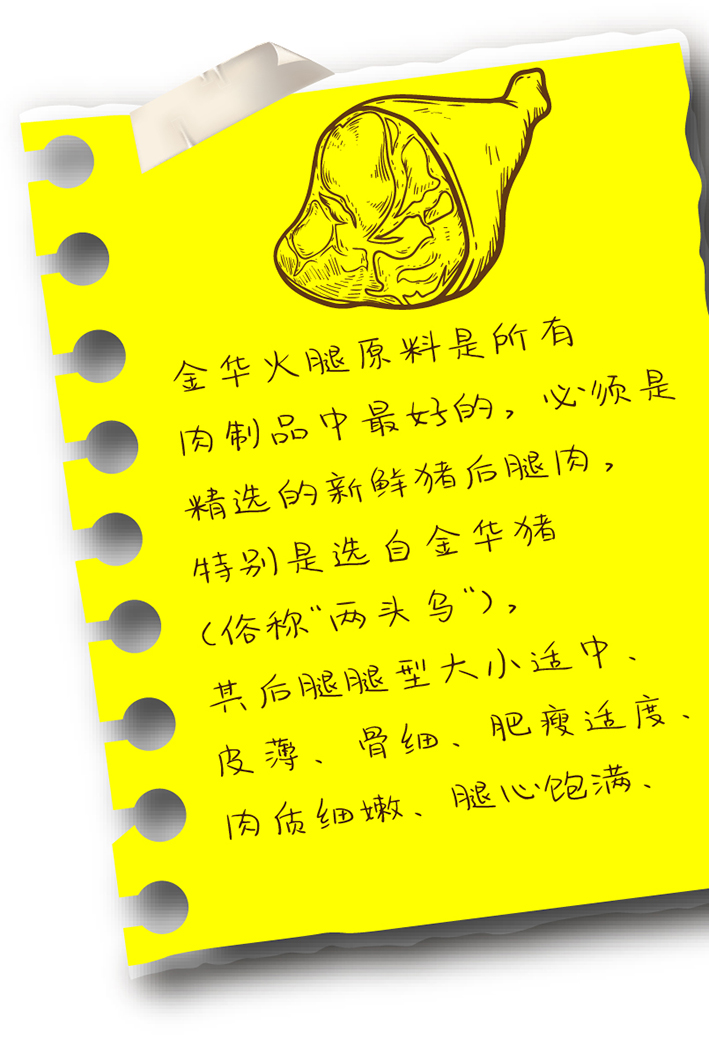 金华火腿原料是所有
肉制品中最好的，必须是
精选的新鲜猪后腿肉，
特别是选自金华猪
（俗称“两头乌”），
其后腿腿型大小适中、
皮薄、骨细、肥瘦适度、
肉质细嫩、腿心饱满、